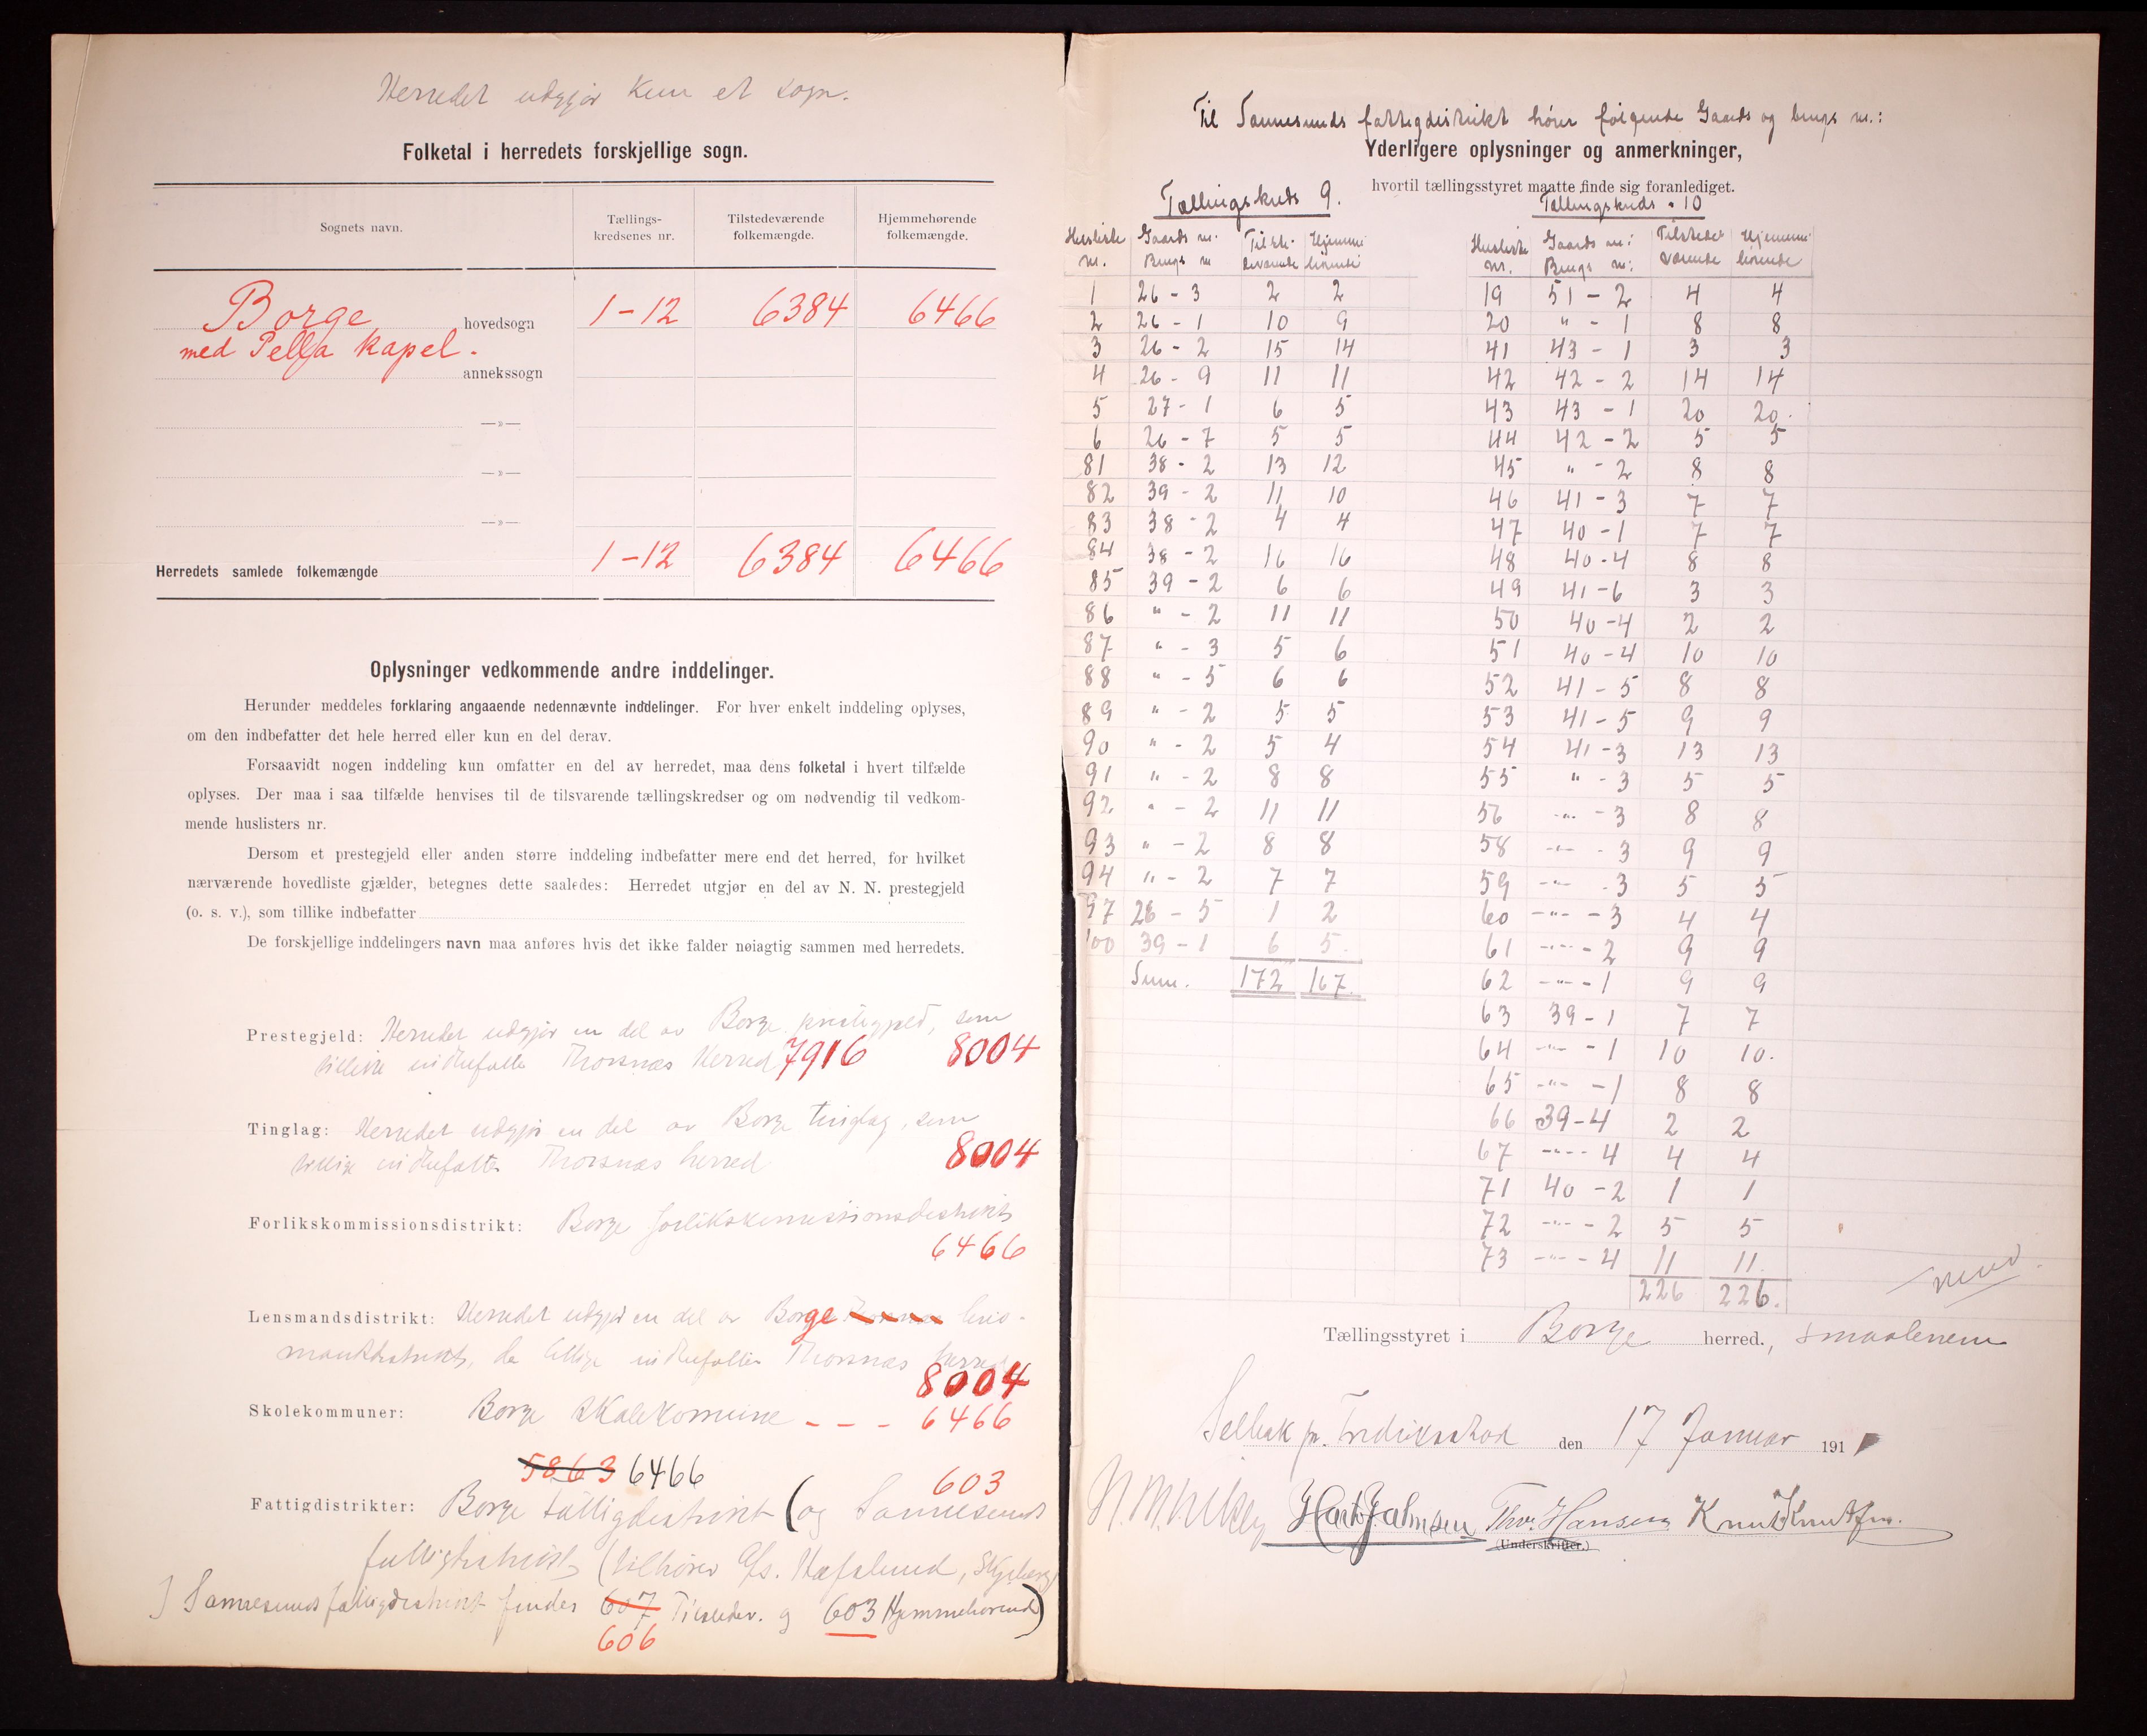 Herredet udgjør kun et sogn.
Folketal i herredets forskjellige sogn.
Sognets navn. Tællings-kredsenes nr. Tilstedeværende folkemængde. Hjemmehørende folkemængde.
Borge hovedsogn 1-12 6384 6466
med Pella kapel. annekssogn
—»—
—»—
—»—
Herredets samlede folkemængde 1-12 6384 6466
Oplysninger vedkommende andre inddelinger.
Herunder meddeles forklaring angaaende nedennævnte inddelinger. For hver enkelt inddeling oplyses,
om den indbefatter det hele herred eller kun en del derav.
Forsaavidt nogen inddeling kun omfatter en del av herredet, maa dens folketal i hvert tilfælde
oplyses. Der maa i saa tilfælde henvises til de tilsvarende tællingskredser og om nødvendig til vedkom-
mende huslisters nr.
Dersom et prestegjeld eller anden større inddeling indbefatter mere end det herred, for hvilket
nærværende hovedliste gjælder, betegnes dette saaledes: Herredet utgjør en del av N. N. prestegjeld
(o. s. v.), som tillike indbefatter
De forskjellige inddelingers navn maa anføres hvis det ikke falder nøiagtig sammen med herredets.
Prestegjeld: Herredet udgjør en del av Borge prestegjeld, som
tillike indbefatter Thorsnæs Herred 7916 8004
Tinglag: Herredet udgjør en del av Borge tinglag, som
tillige indbefatter Thorsnæs herred 8004
Forlikskommissionsdistrikt: Borge forlikskommissionsdistrikt
6466
Lensmandsdistrikt: Herredet udgjør en del av Borge lens-
mandsdistrikt, da tillige indbefatter Thorsnæs herred
8004
Skolekommuner: Borge skolekomune - - - 6466
5863 6466 603
Fattigdistrikter: Borge fattigdistrikt (og Sannesunds
fattigdistrikt (tilhører A/s. Hafslund, Skjeberg
I Sannesunds fattigdistrikt findes 607 Tilstedev. og 603 Hjemmehørende)
606
Til Sannesunds fattigdistrikt hører følgende Gaards og brugs nr.:
Yderligere oplysninger og anmerkninger,
hvortil tællingsstyret maatte finde sig foranlediget.
Tællingskreds 9.
Husliste nr. Gaards nr. Brugs nr Tilstedeværende Hjemmehørende
1 26 - 3 2 2
2 26 - 1 10 9
3 26 - 2 15 14
4 26 - 9 11 11
5 27 - 1 6 5
6 26 - 7 5 5
81 38 - 2 13 12
82 39 - 2 11 10
83 38 - 2 4 4
84 38 - 2 16 16
85 39 - 2 6 6
86 " - 2 11 11
87 " - 3 5 6
88 " - 5 6 6
89 " - 2 5 5
90 " - 2 5 4
91 " - 2 8 8
92 " - 2 11 11
93 " - 2 8 8
94 " - 2 7 7
97 26 - 5 1 2
100 39 - 1 6 5.
Sum. 172 167.
Tællingskreds 10
Husliste nr. Gaards nr: Brugs nr: Tilstedeværende Hjemmehørende
19 51 - 2 4 4
20 " - 1 8 8
41 43 - 1 3 3
42 42 - 2 14 14
43 43 - 1 20 20.
44 42 - 2 5 5
45 " - 2 8 8
46 41 - 3 7 7
47 40 - 1 7 7
48 40 - 4 8 8
49 41 - 6 3 3
50 40 - 4 2 2
51 40 - 4 10 10
52 41 - 5 8 8
53 41 - 5 9 9
54 41 - 3 13 13
55 " - 3 5 5
56 -"- - 3 8 8
58 -"- - 3 9 9
59 -"- - 3 5 5
60 -"- - 3 4 4
61 -"- - 2 9 9
62 -"- - 1 9 9
63 39 - 1 7 7
64 -"- - 1 10 10.
65 -"- - 1 8 8
66 39 - 4 2 2
67 -"- - 4 4 4
71 40 - 2 1 1
72 -"- - 2 5 5
73 -"- - 4 11 11.
226 226.
vend.
Tællingsstyret i Borge herred., Smaalenene
Selbak pr. Fredriksstad den 17 Januar 191
Thv. Hansen Knut Knutsen.
(Underskrifter.)